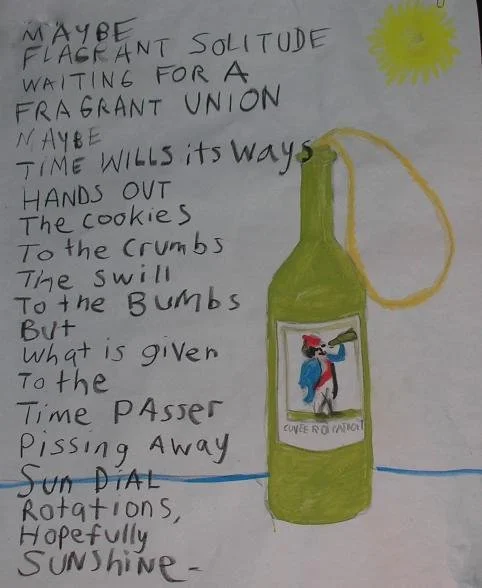 MAYBE
FLAGRANT SOLITUDE
WAITING FOR A
FRAGRANT UNION
MAYBE
TIME WILLS its Ways
HANDS OUT
The cookies
To the Crumbs
The Swill
To the BUMbS
But
what is given
To the
Time PAsser
Pissing Away
Sun DiAL
Rotations,
Hopefully
SUNShine-
CUVEE